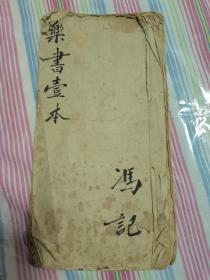 藥書壹本
馮記